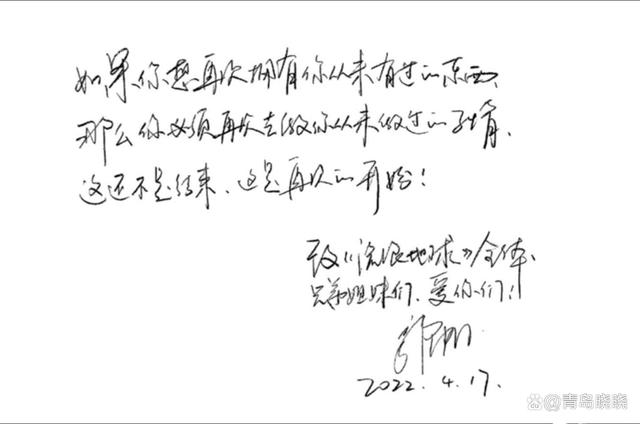 如果你想再次拥有你从来有过的东西,
那么你必须再次去做你从来做过的事情.
这还不是结束、这是再次的开始!
致《流浪地球》全体、
兄弟姐妹们、爱你们!
郭帆
2022.4.17.
@青岛晓晓